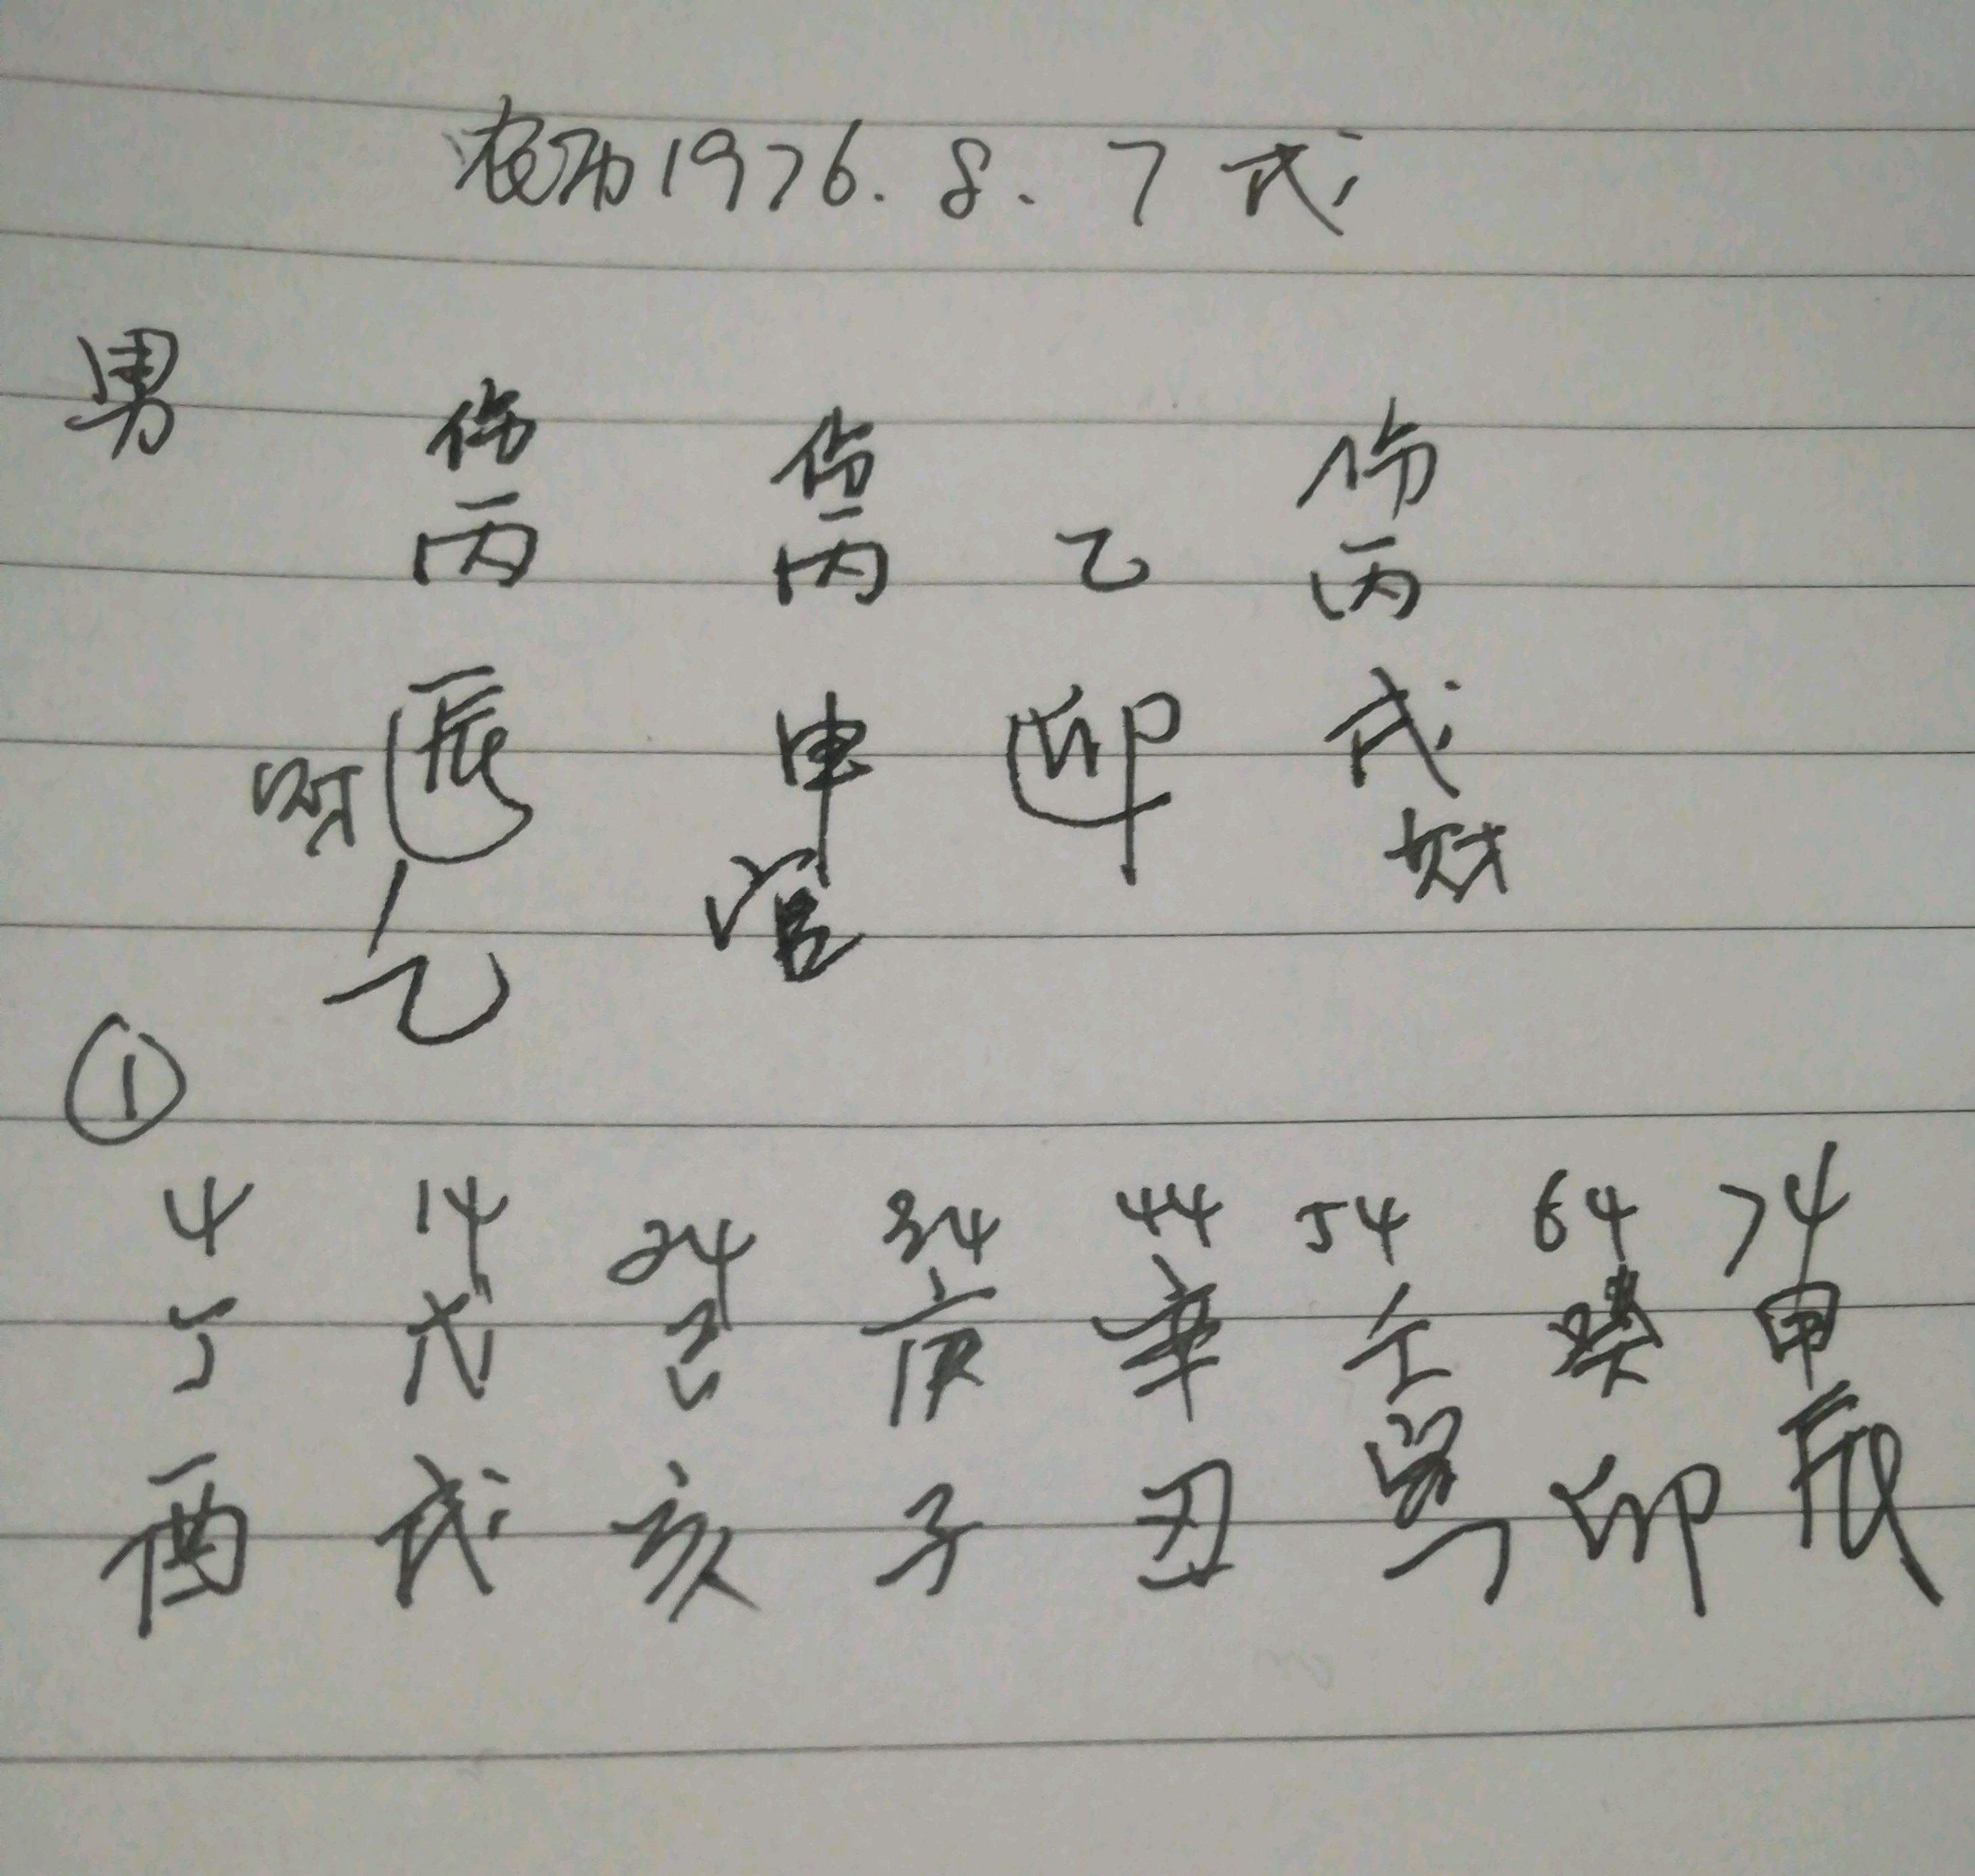 农历1976.8.7戌
男
伤 伤 伤
丙 丙 乙 丙
辰 申 卯 戌
官 财
乙
①
4 14 24 34 44 54 64 74
丁 戊 己 庚 辛 壬 癸 甲
酉 戌 亥 子 丑 寅 卯 辰